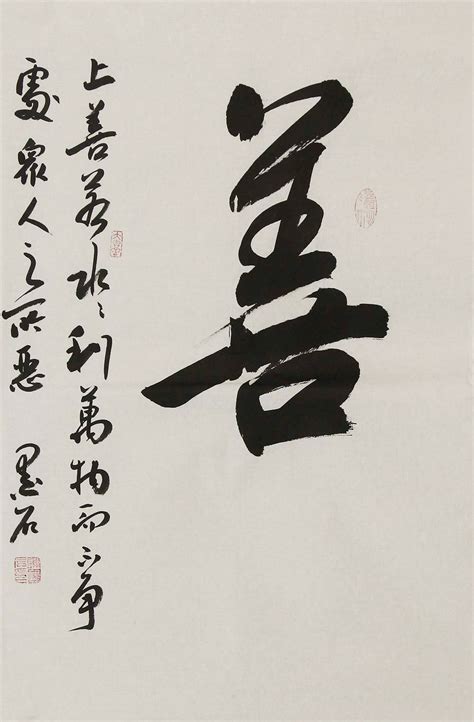 善
上善若水〻利萬物而不争
處衆人之所惡 墨石